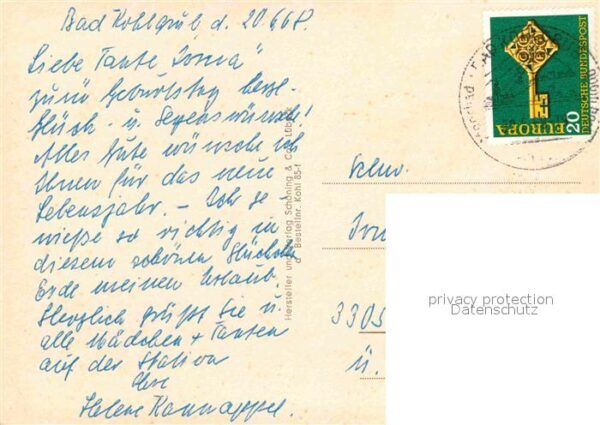 Bad Kohlgrub, d. 20.6.68.
Liebe Tante Irma"
zum Geburtstag herzl.
Glück- u. Segenswünsche!
Alles Gute wünsche ich
Ihnen für das neue
Lebensjahr. - Ich ge-
nieße so richtig in
diesem schönen Stückchen
Erde meinen Urlaub.
Herzlich grüßt Sie u.
alle Mädchen + Tanten
auf der Station
Ihre
Helene Kannappel.
Hersteller und Verlag Schöning & Co., Lübeck
Bestellnr. Kohl 85-f
EUROPA
20
DEUTSCHE BUNDESPOST
Schw.
Irm
3305
ü.
privacy protection
Datenschutz